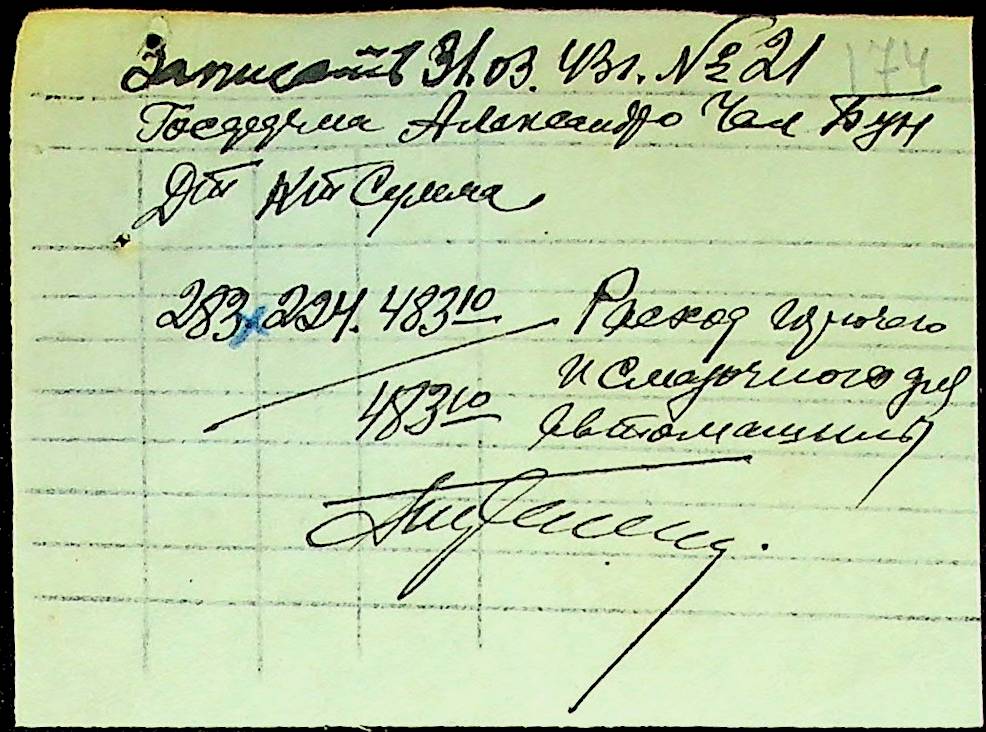 Записать 31.03.43г. № 21 174
Александро Чал Бун
Дт Кт Сумма
283 x 224. 483 10 Расход горючего
и смазочного для
483 10 автомашины